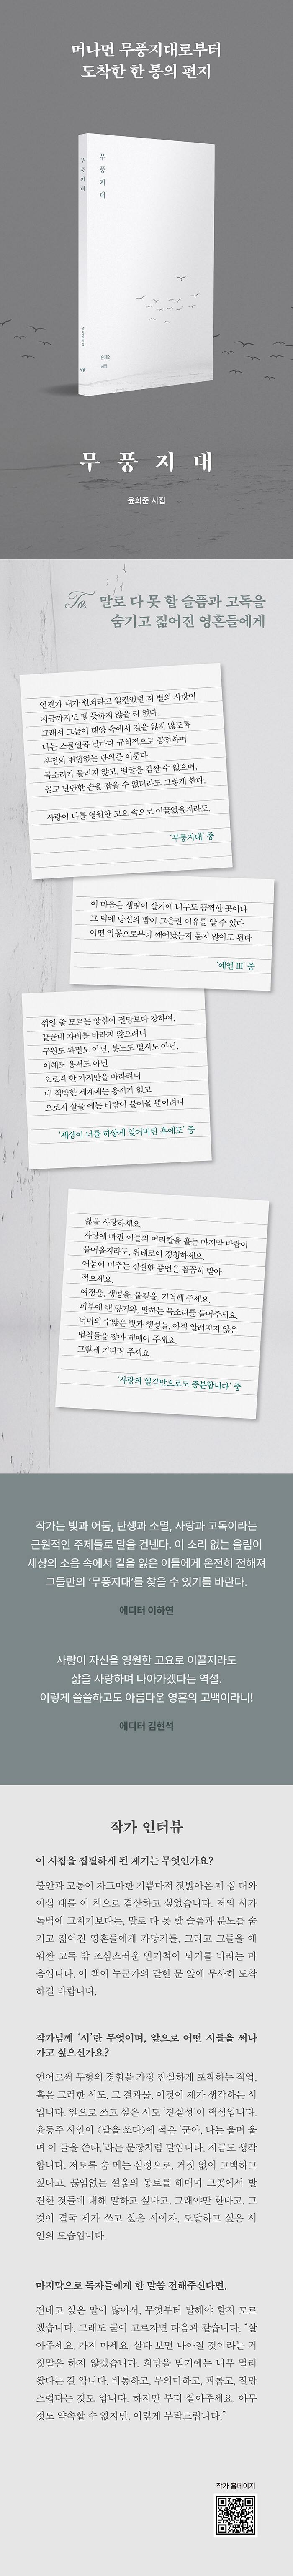 머나먼 무풍지대로부터
도착한 한 통의 편지
무풍지대
무풍지대
윤희준 시집
윤희준
시집
무풍지대
윤희준 시집
To. 말로 다 못 할 슬픔과 고독을
숨기고 짊어진 영혼들에게
언젠가 내가 원죄라고 일컬었던 저 별의 사랑이
지금까지도 델 듯하지 않을 리 없다.
그래서 그들이 태양 속에서 길을 잃지 않도록
나는 스물일곱 날마다 규칙적으로 공전하며
사철의 변함없는 단위를 이룬다.
목소리가 들리지 않고, 얼굴을 감쌀 수 없으며,
곧고 단단한 손을 잡을 수 없더라도 그렇게 한다.
사랑이 나를 영원한 고요 속으로 이끌었을지라도.
‘무풍지대’ 중
이 마음은 생명이 살기에 너무도 끔찍한 곳이나
그 덕에 당신의 뺨이 그을린 이유를 알 수 있다
어떤 악몽으로부터 깨어났는지 묻지 않아도 된다
‘예언 III’ 중
꺾일 줄 모르는 양심이 절망보다 강하여,
끝끝내 자비를 바라지 않으려니
구원도 파멸도 아닌, 분노도 멸시도 아닌,
이해도 용서도 아닌
오로지 한 가지만을 바라려니
네 척박한 세계에는 용서가 없고
오로지 살을 에는 바람이 불어올 뿐이려니
‘세상이 너를 하얗게 잊어버린 후에도’ 중
삶을 사랑하세요.
사랑에 빠진 이들의 머리칼을 흩는 마지막 바람이
불어올지라도, 위태로이 경청하세요.
어둠이 비추는 진실한 증언을 꼼꼼히 받아
적으세요.
여정을, 생명을, 불길을, 기억해 주세요.
피부에 밴 향기와, 말하는 목소리를 들어주세요.
너머의 수많은 빛과 행성들, 아직 알려지지 않은
법칙들을 찾아 헤매어 주세요.
그렇게 기다려 주세요.
‘사랑의 일각만으로도 충분합니다’ 중
작가는 빛과 어둠, 탄생과 소멸, 사랑과 고독이라는
근원적인 주제들로 말을 건넨다. 이 소리 없는 울림이
세상의 소음 속에서 길을 잃은 이들에게 온전히 전해져
그들만의 ‘무풍지대’를 찾을 수 있기를 바란다.
에디터 이하연
사랑이 자신을 영원한 고요로 이끌지라도
삶을 사랑하며 나아가겠다는 역설.
이렇게 쓸쓸하고도 아름다운 영혼의 고백이라니!
에디터 김현석
작가 인터뷰
이 시집을 집필하게 된 계기는 무엇인가요?
불안과 고통이 자그마한 기쁨마저 짓밟아온 제 십 대와
이십 대를 이 책으로 결산하고 싶었습니다. 저의 시가
독백에 그치기보다는, 말로 다 못 할 슬픔과 분노를 숨
기고 짊어진 영혼들에게 가닿기를, 그리고 그들을 에
워싼 고독 밖 조심스러운 인기척이 되기를 바라는 마
음입니다. 이 책이 누군가의 닫힌 문 앞에 무사히 도착
하길 바랍니다.
작가님께 ‘시’란 무엇이며, 앞으로 어떤 시들을 써나
가고 싶으신가요?
언어로써 무형의 경험을 가장 진실하게 포착하는 작업,
혹은 그러한 시도, 그 결과물. 이것이 제가 생각하는 시
입니다. 앞으로 쓰고 싶은 시도 ‘진실성’이 핵심입니다.
윤동주 시인이 〈달을 쏘다〉에 적은 ‘군아, 나는 울며 울
며 이 글을 쓴다.’라는 문장처럼 말입니다. 지금도 생각
합니다. 저토록 숨 메는 심정으로, 거짓 없이 고백하고
싶다고. 끊임없는 설움의 동토를 헤매며 그곳에서 발
견한 것들에 대해 말하고 싶다고. 그래야만 한다고. 그
것이 결국 제가 쓰고 싶은 시이자, 도달하고 싶은 시
인의 모습입니다.
마지막으로 독자들에게 한 말씀 전해주신다면.
건네고 싶은 말이 많아서, 무엇부터 말해야 할지 모르
겠습니다. 그래도 굳이 고르자면 다음과 같습니다. “살
아주세요. 가지 마세요. 살다 보면 나아질 것이라는 거
짓말은 하지 않겠습니다. 희망을 믿기에는 너무 멀리
왔다는 걸 압니다. 비통하고, 무의미하고, 괴롭고, 절망
스럽다는 것도 압니다. 하지만 부디 살아주세요. 아무
것도 약속할 수 없지만, 이렇게 부탁드립니다.”
작가 홈페이지